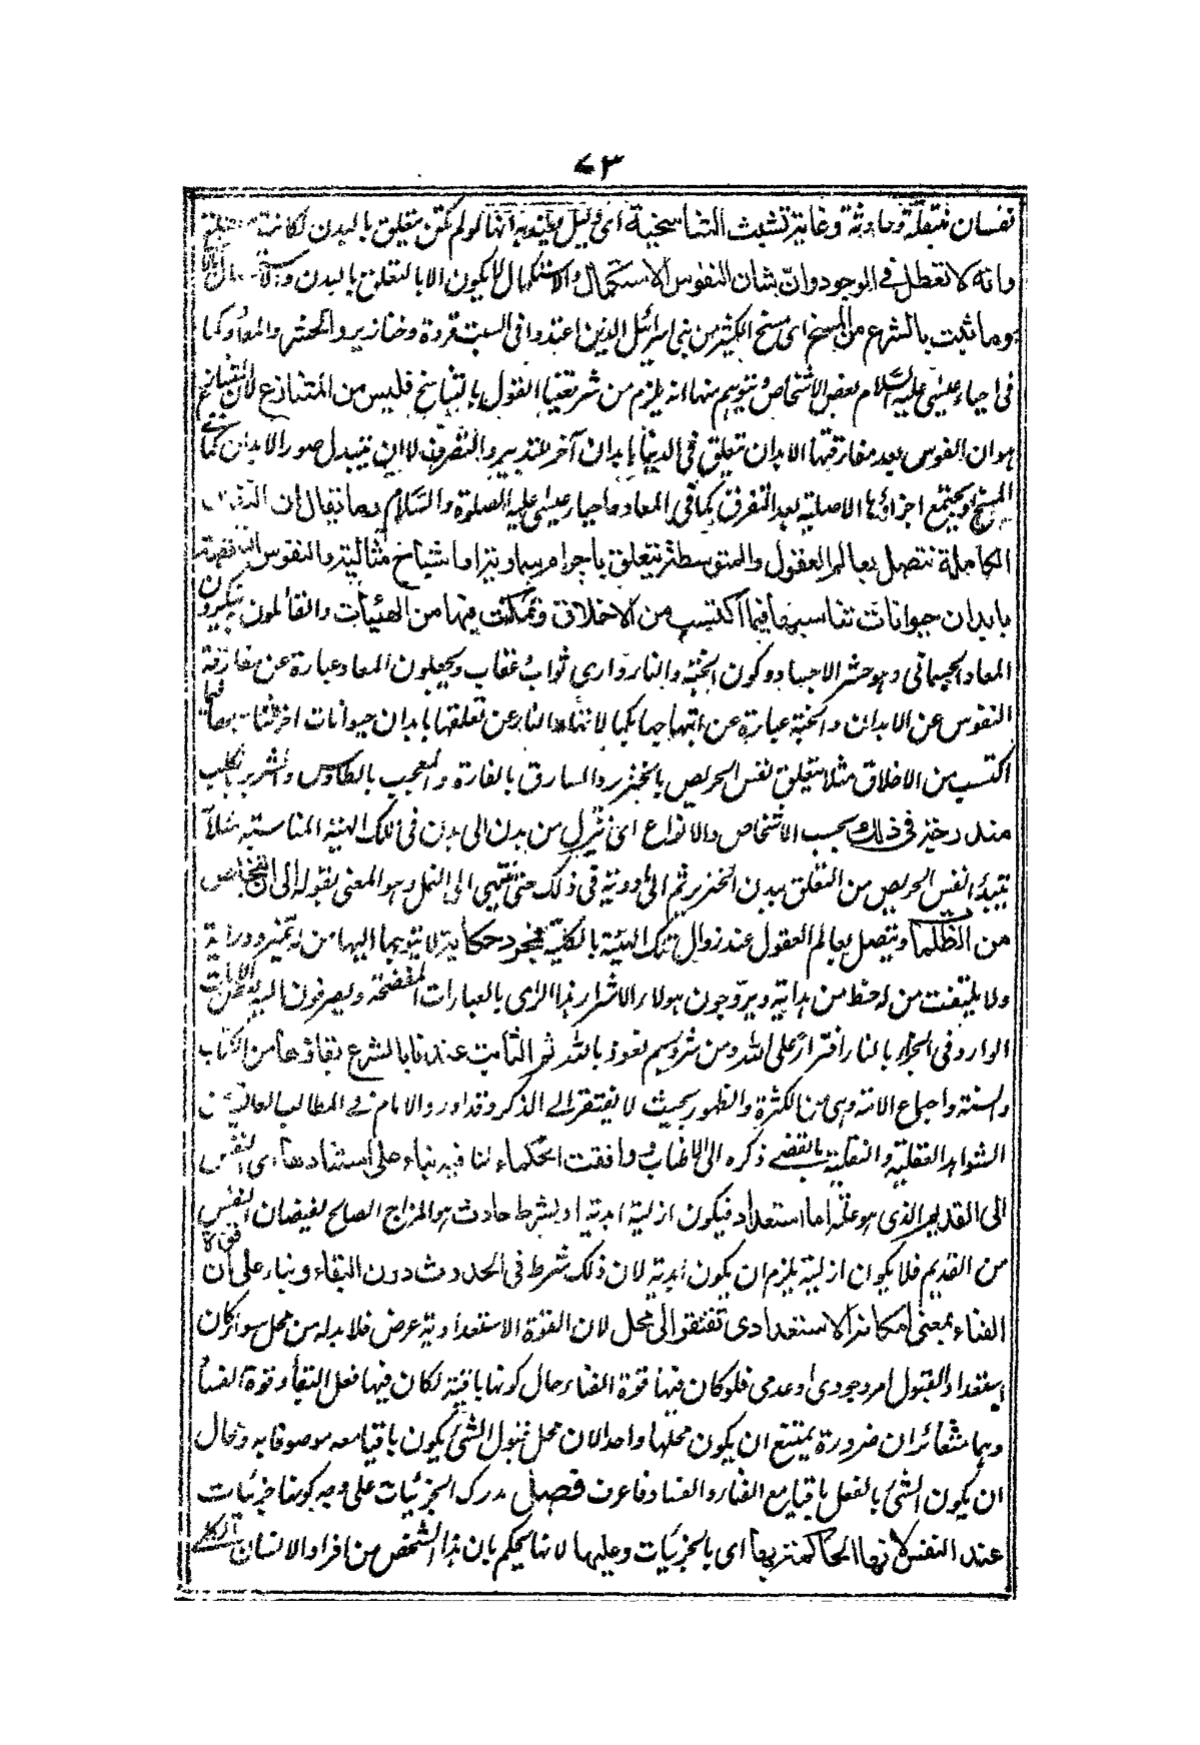 ٧٣
نفسان منتقلة وحادثة وغاية تشبث التناسخية اى دليل يظنونه انها لو لم تكن متعلق بالبدن لكانت معطلة
وانه لا تعطل فى الوجود وان شان النفوس الاستكمال والاستكمال لا يكون الا بالتعلق بالبدن
وما ثبت بالشرع من المسخ اى مسخ الكثير من بنى اسرائيل الذين اعتدوا فى السبت قردة وخنازير والحشر والمعاد كما
فى احياء عيسى عليه السلام بعض الاشخاص ويتوهم منها انه يلزم من شريعتنا القول بالتناسخ فليس من المتنازع لان التناسخ
هو ان النفوس بعد مفارقتها الابدان تتعلق فى الدنيا بابدان آخر للتدبير والتصرف لا ان يتبدل صور الابدان كما فى
المسخ او يجتمع اجزاؤها الاصلية بعد التفرق كما فى المعاد واحياء عيسى عليه الصلوة والسلام وما يقال ان النفوس
الكاملة تتصل بعالم العقول والمتوسطة تتعلق باجرام سماوية او اشباح مثالية والنفوس الناقصة
بابدان حيوانات تناسبها فيما اكتسب من الاخلاق وتمكنت فيها من الهيئات والقائلون ينكرون
المعاد الجسمانى وهو حشر الاجساد وكون الجنة والنار دارى ثواب وعقاب ويجعلون المعاد عبارة عن مفارقة
النفوس عن الابدان والجنة عبارة عن ابتهاجها بكمالاتها والنار عن تعلقها بابدان حيوانات اخر تناسبها فيما
اكتسب من الاخلاق مثلا يتعلق نفس الحريص بالخنزير والسارق بالفارة والمعجب بالطاوس والشرير بالكلب
متدرجة فى ذلك بحسب الاشخاص والانواع اى تنزل من بدن الى بدن فى تلك الهيئة المناسبة مثلا
تبتدأ نفس الحريص من التعلق ببدن الخنزير ثم الى ادونه فى ذلك حتى تنتهى الى النمل وهو المعنى بقوله الى ان تخلص
من الظلمات وتتصل بعالم العقول عند زوال تلك الهيئة بالكلية فمجرد حكاية لا يتوجه اليها من له تميز ودراية
ولا يلتفت من له حظ من هداية ويروجون هولاء الاشرار هذا الراى بالعبارات المفضحة ويصرفون اليه الآيات
الواردة فى الجزاء بالنار افتراء على الله ومن شرورهم نعوذ بالله ثم الثابت عندنا بالشرع بقاؤها من الكتاب
والسنة واجماع الامة وهى من الكثرة والظهور بحيث لا يفتقر الى الذكر وقد اورد الامام فى المطالب العالية من
الشواهد العقلية والنقلية ما يفضى ذكره الى الاطناب ووافقت الحكماء لنا فيه بناء على استنادها اى النفس
الى القديم الذى هو علة اما استعداد فيكون ازلية ابدية او بشرط حادث هو المزاج الصالح لفيضان النفس
من القديم فلا يكون ازلية يلزم ان يكون ابدية لان ذلك شرط فى الحدوث دون البقاء وبناء على ان قوة
الفناء بمعنى امكانه الاستعدادى تفتقر الى محل لان القوة الاستعدادية عرض فلا بد له من محل سواء كان
استعداد القبول امر وجودى او عدمى فلو كان فيها قوة الفناء حال كونها باقية لكان فيها فعل البقأ وقوة الفنأ
وهما متغائران ضرورة يمتنع ان يكون محلهما واحد لان محل قبول الشئ يكون باقيا معه موصوفا به ومحال
ان يكون الشئ بالفعل باقيا مع الفناء والفساد فاعرف فصل مدرك الجزئيات على وجه كونها جزئيات
عند النفس لانها الحاكمة بها اى بالجزئيات وعليها لانها يحكم بان هذا الشخص من افراد الانسان